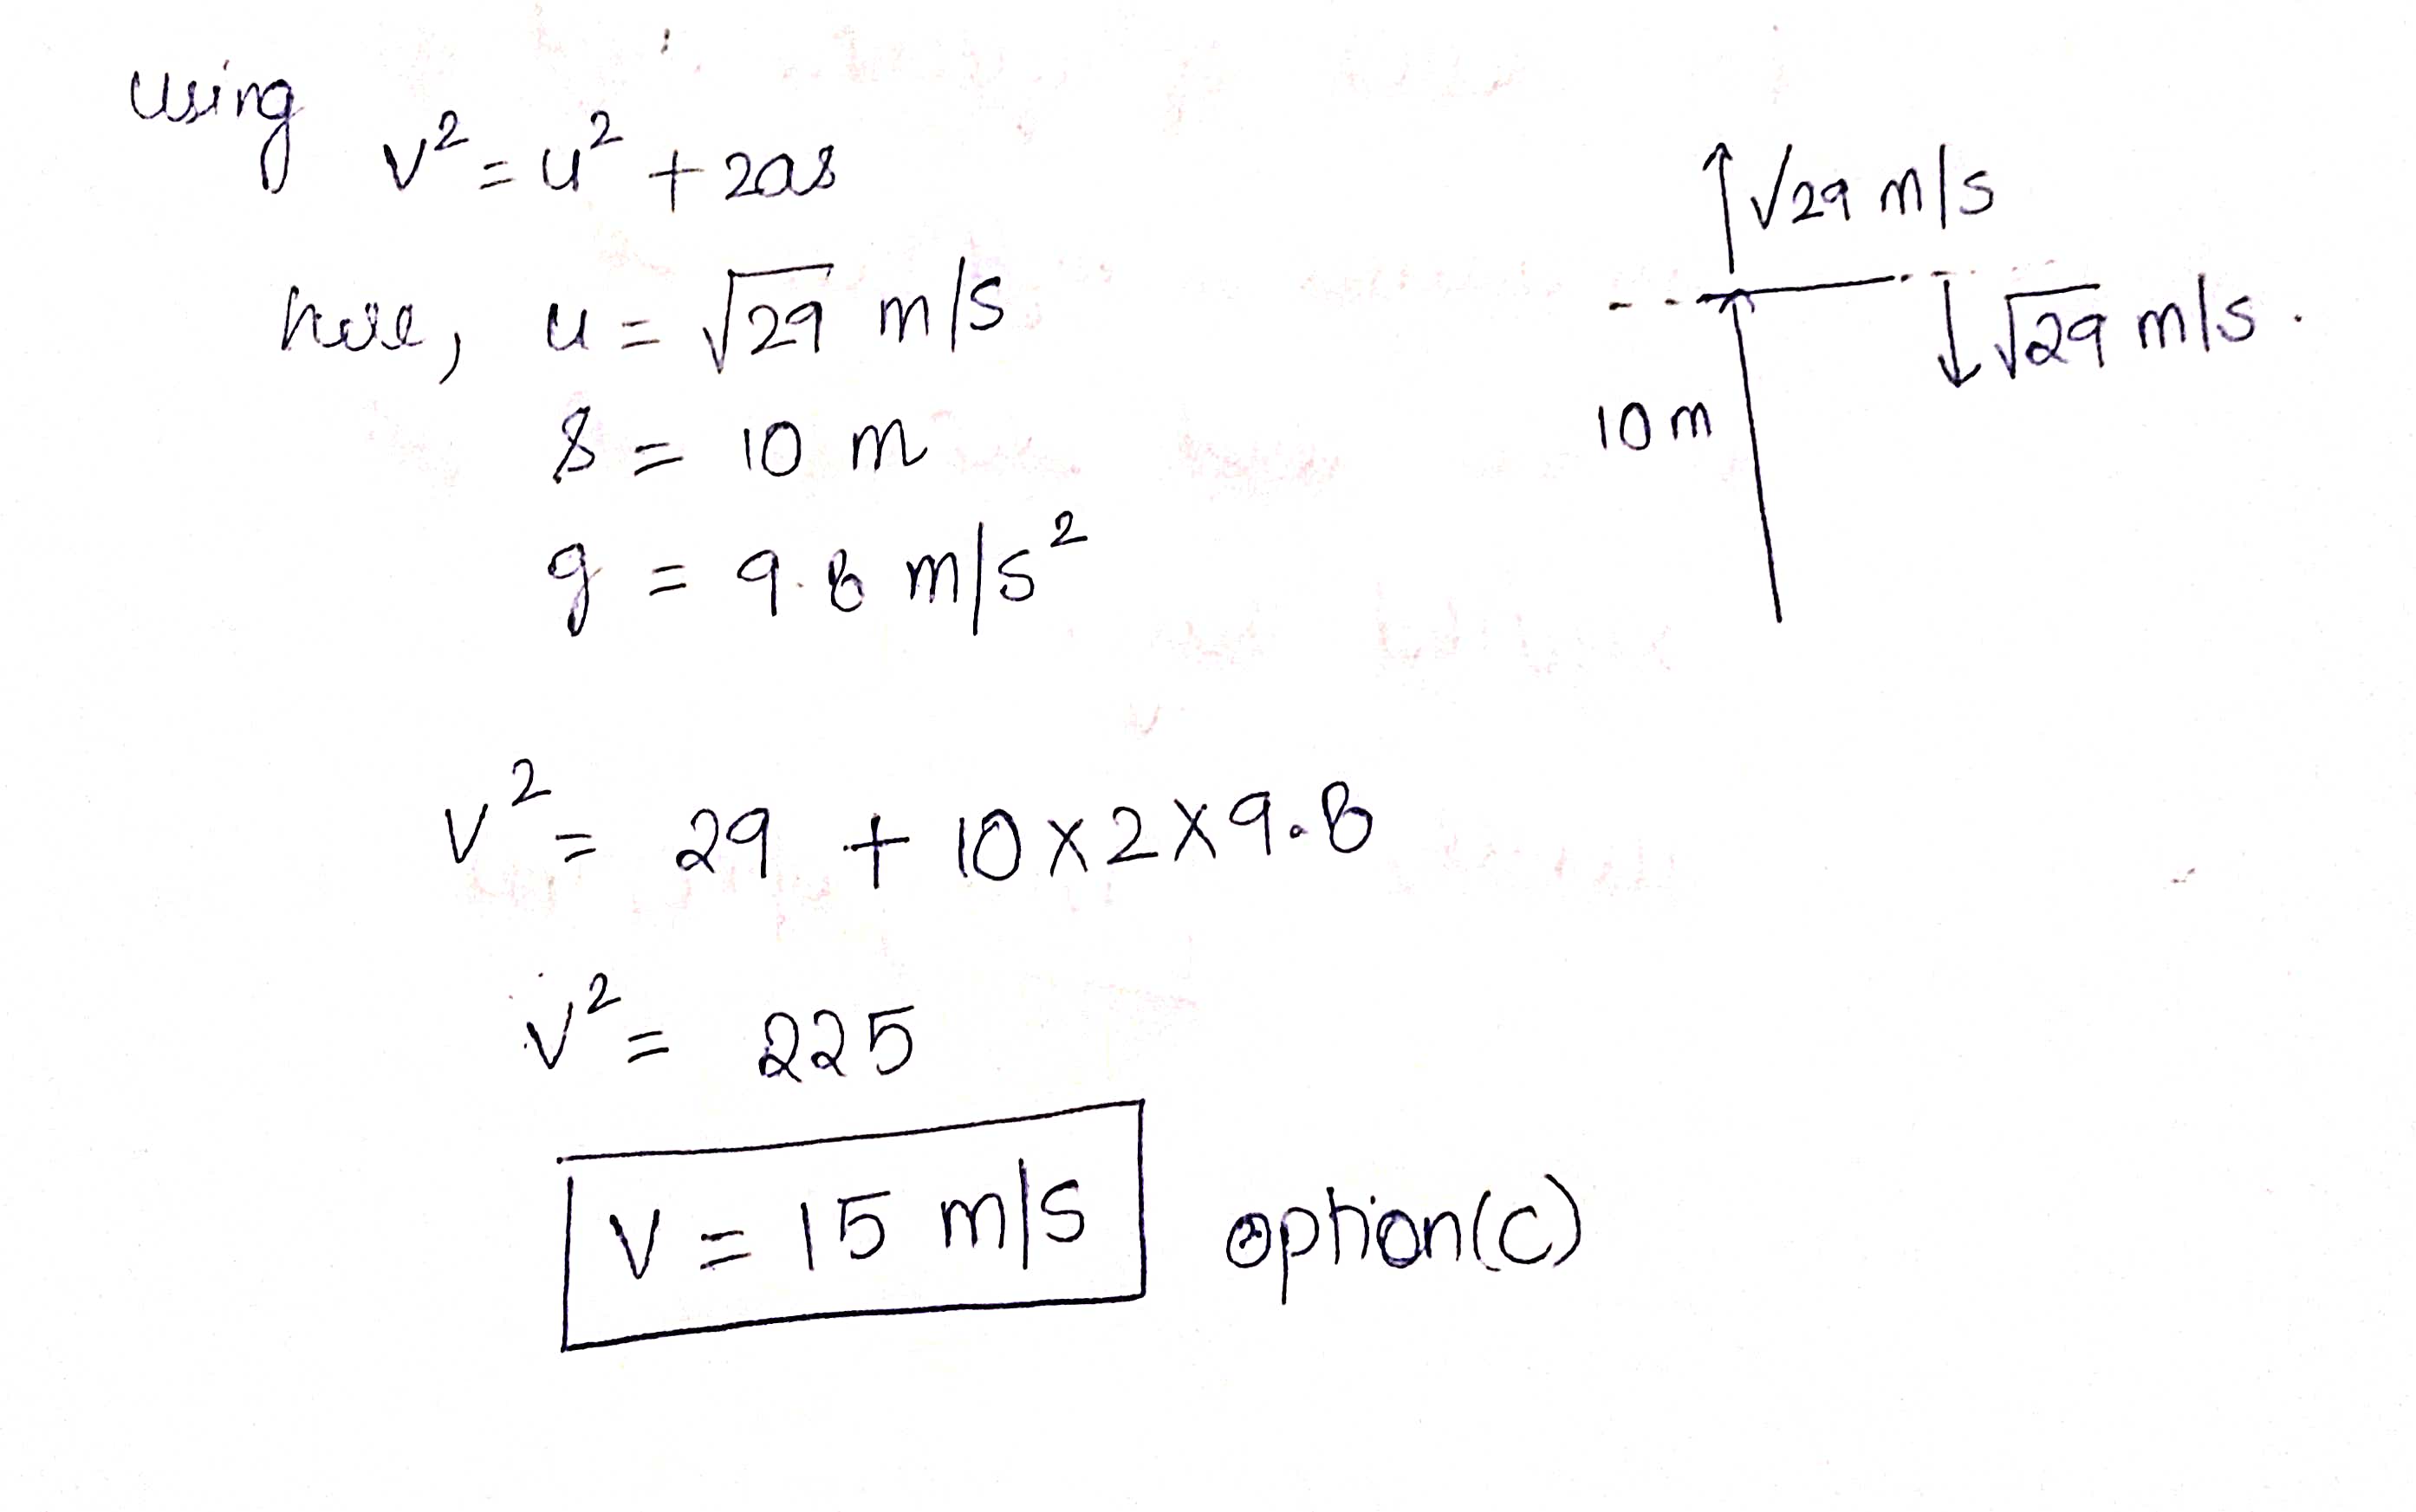 using
v² = u² + 2as
here, u = √29 m/s
s = 10 m
g = 9.8 m/s²
↑ √29 m/s
↓ √29 m/s.
10 m
v² = 29 + 10 × 2 × 9.8
v² = 225
v = 15 m/s option(c)